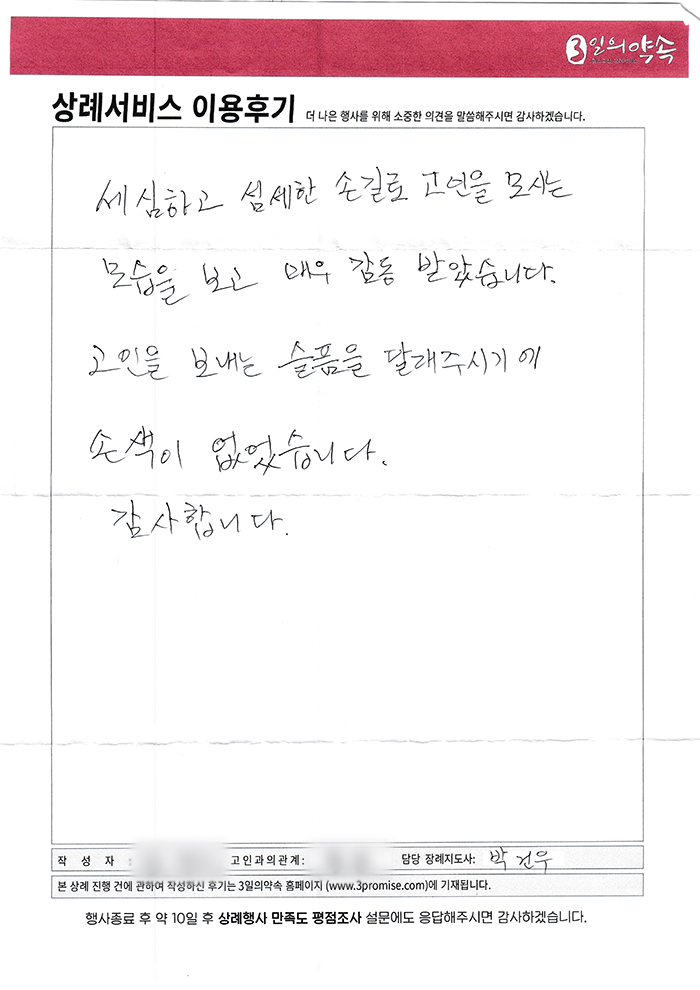 3일의약속
상례서비스 이용후기 더 나은 행사를 위해 소중한 의견을 말씀해주시면 감사하겠습니다.
세심하고 섬세한 손길로 고인을 모시는
모습을 보고 매우 감동 받았습니다.
고인을 보내는 슬픔을 달래주시기에
손색이 없었습니다.
감사합니다.
작 성 자 : 고인과의관계: 담당 장례지도사: 박건우
본 상례 진행 건에 관하여 작성하신 후기는 3일의약속 홈페이지 (www.3promise.com)에 기재됩니다.
행사종료 후 약 10일 후 상례행사 만족도 평점조사 설문에도 응답해주시면 감사하겠습니다.